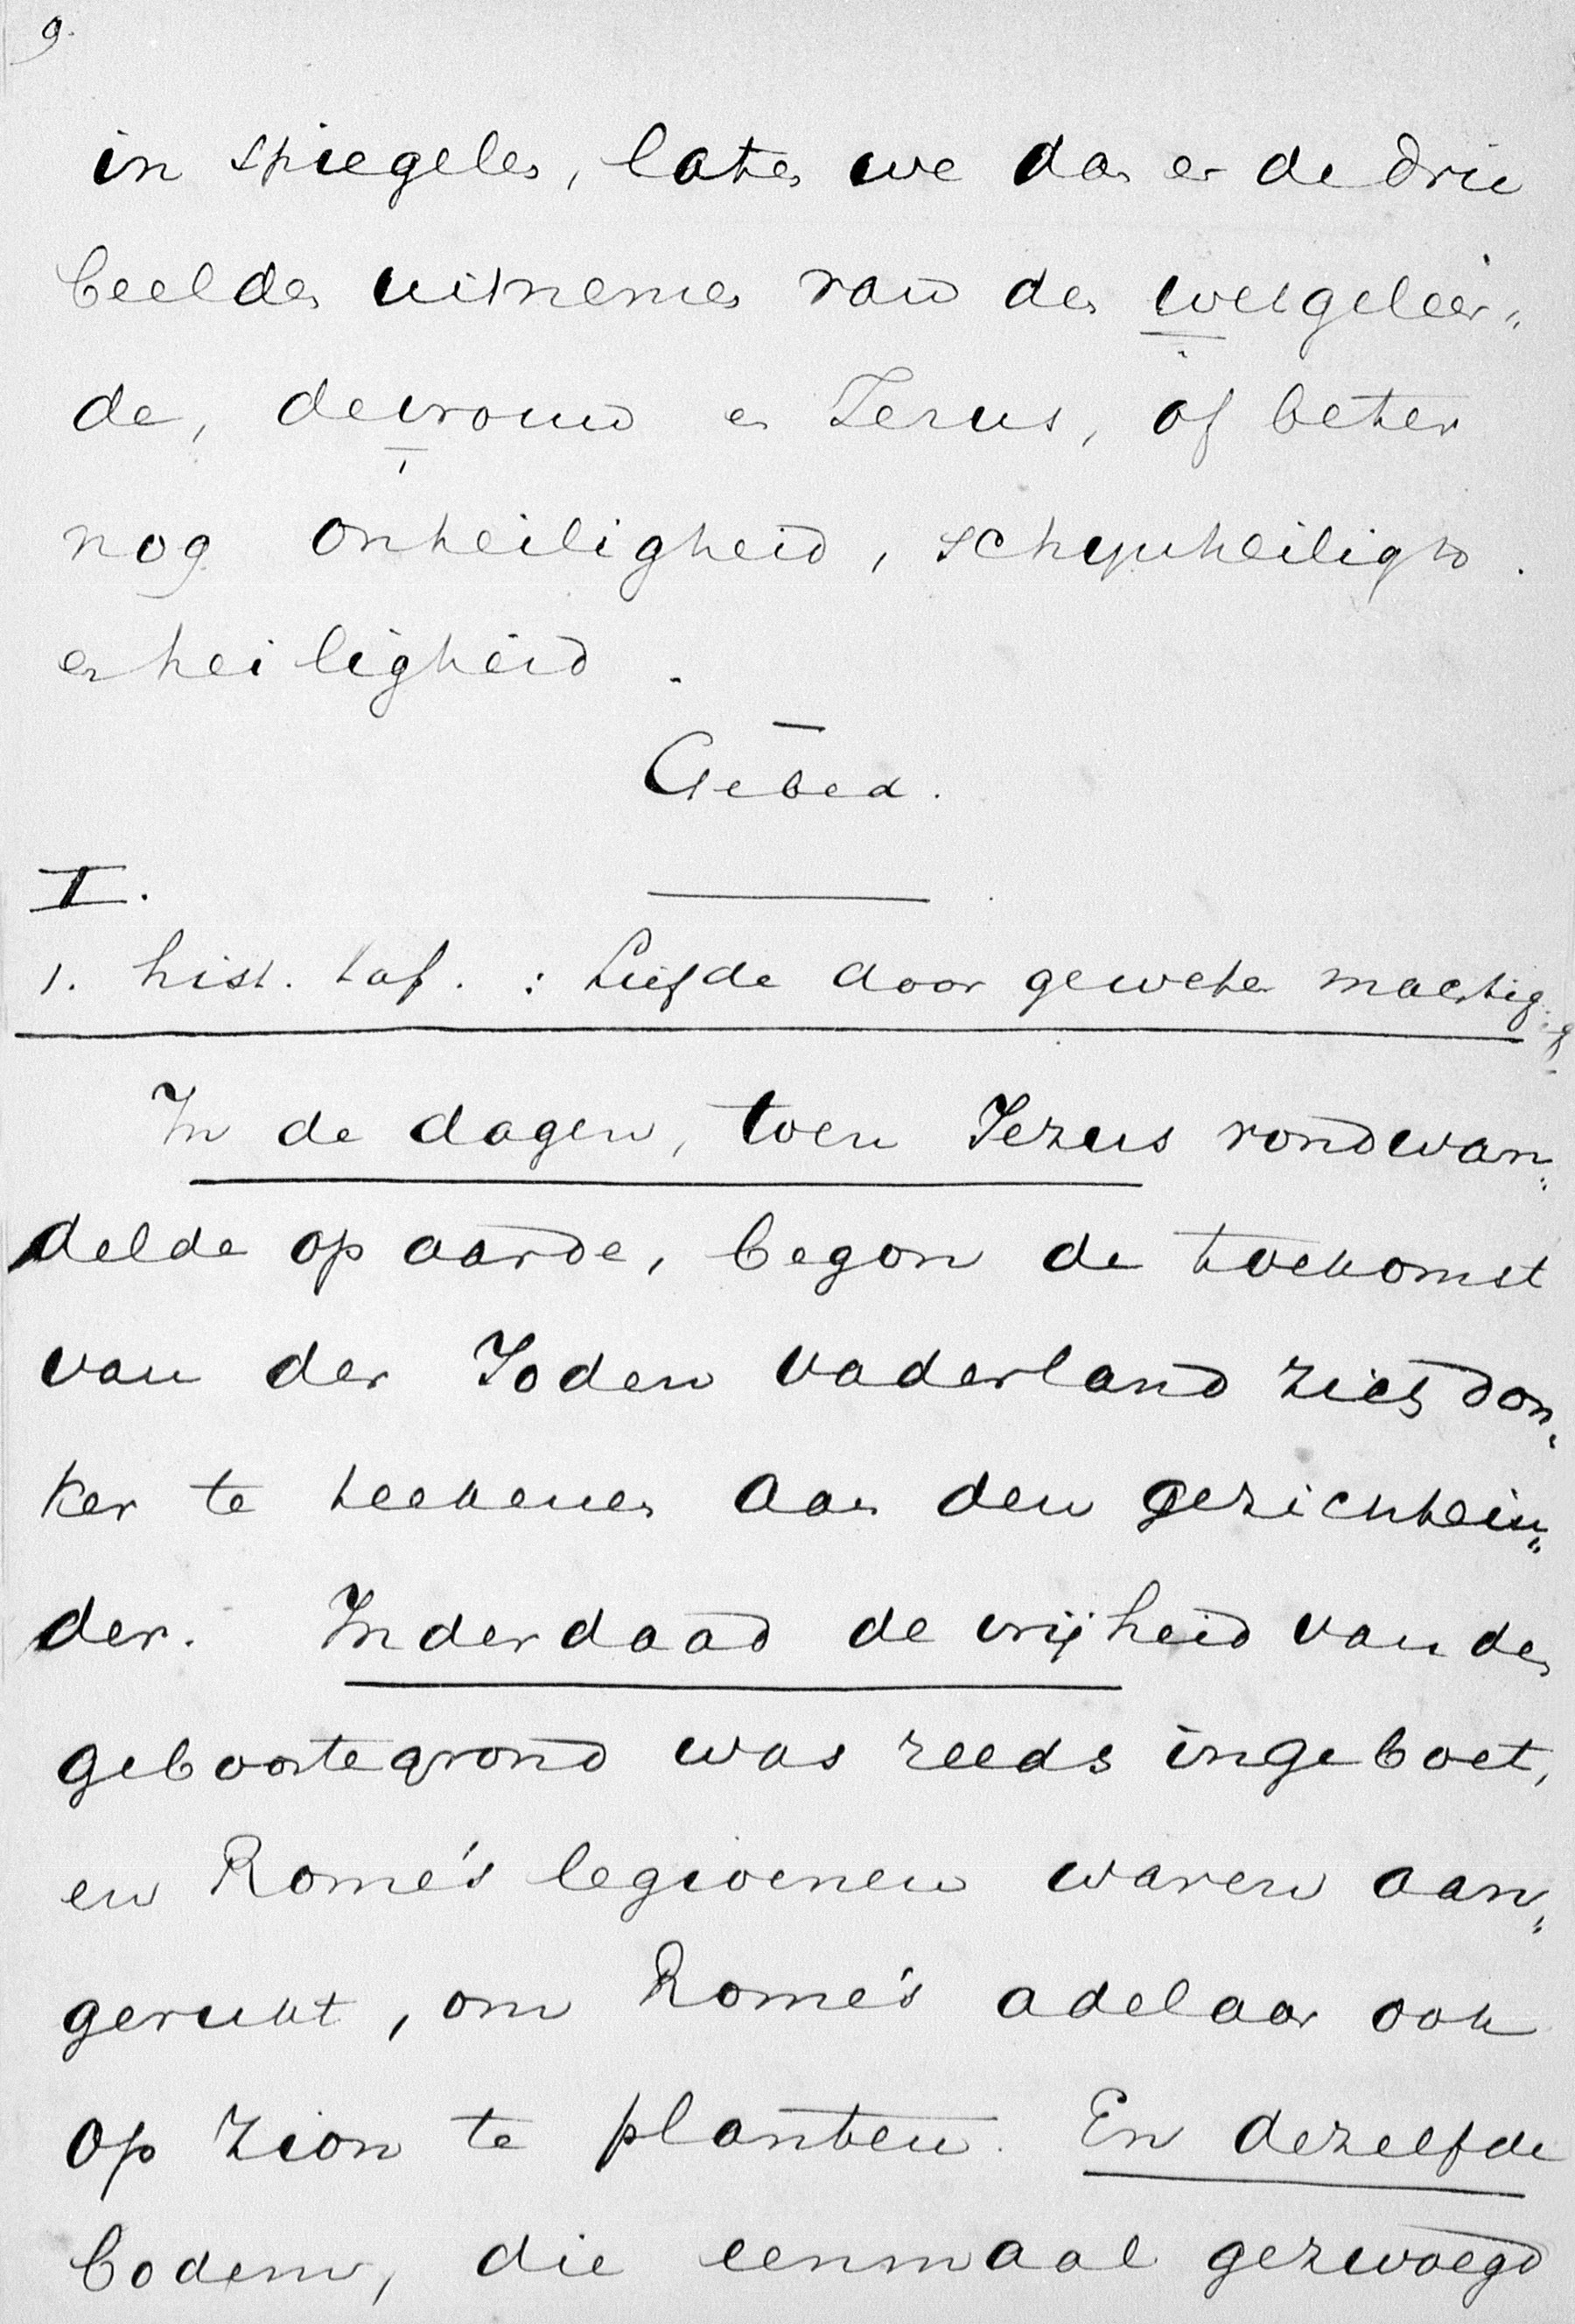 9.
in spiegelen, laten we dan er de drie
beelden uitnemen van den wetgeleer„
de, de vrouw en Jezus, of beter
nog onheiligheid, schijnheilighd.
en heiligheid.
Gebed.
I.
1. hist. taf. : Liefde door geweten machtig
In de dagen, toen Jezus rondwan„
delde op aarde, begon de toekomst
van der Joden vaderland zich don„
ker te teekenen aan den gezichtein„
der. Inderdaad de vrijheid van den
geboortegrond was reeds ingeboet,
en Rome's legioenen waren aan„
gerukt, om Rome's adelaar ook
op Zion te planten. En dezelfde
bodem, die eenmaal gezwoegd